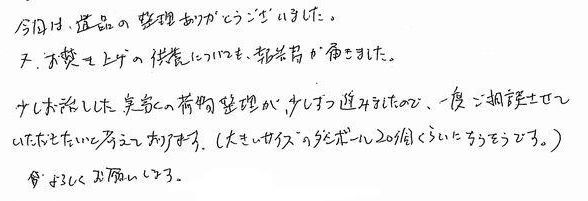 今回は、遺品の整理ありがとうございました。
又、お焚き上げの供養についても、報告書が届きました。
少しお話しした実家の荷物整理が、少しずつ進みましたので、一度ご相談させて
いただきたいと考えております。(大きいサイズのダンボール20個くらいになりそうです。)
よろしくお願いします。